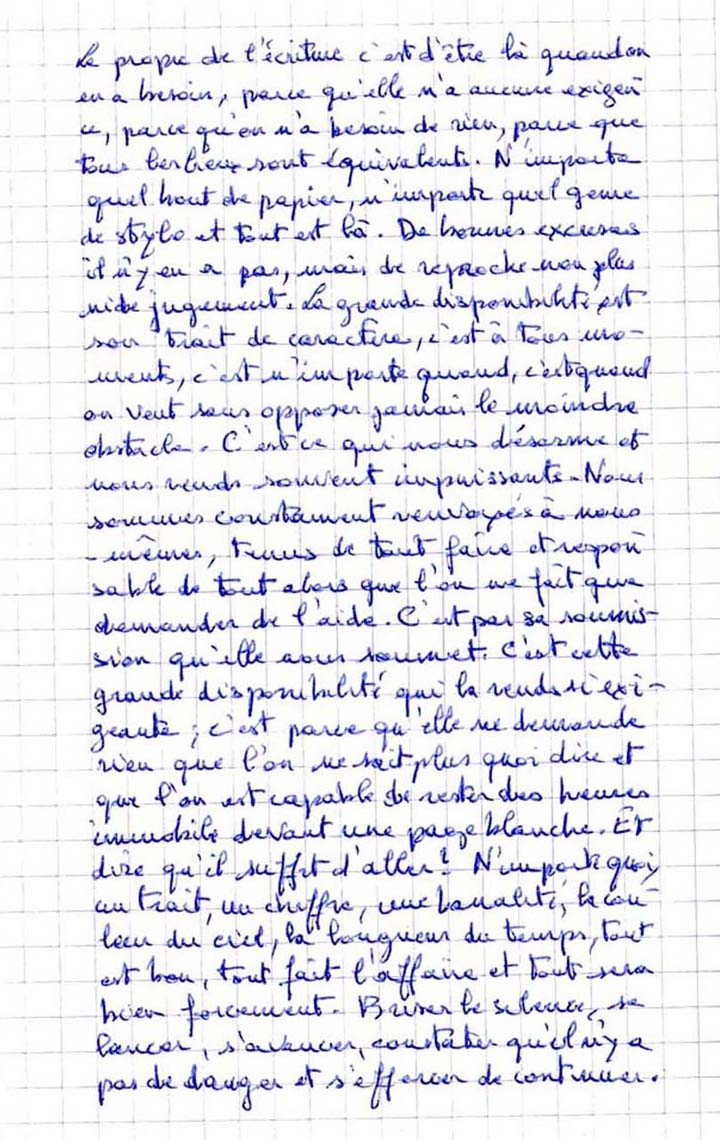 Le propre de l'écriture c'est d'être là quand on
en a besoin, parce qu'elle n'a aucune exigen
ce, parce qu'on n'a besoin de rien, parce que
tous les lieux sont équivalents. N'importe
quel bout de papier, n'importe quel genre
de stylo et tout est là. De bonnes excuses
il n'y en a pas, mais de reproche non plus
ni de jugement. La grande disponibilité est
son trait de caractère, c'est à tous mo-
ments, c'est n'importe quand, c'est quand
on veut sans opposer jamais le moindre
obstacle. C'est ce qui nous désarme et
nous rends souvent impuissants. Nous
sommes constamment renvoyés à nous
-mêmes, tenus de tout faire et respon
sable de tout alors que l'on ne fait que
demander de l'aide. C'est par sa soumis-
sion qu'elle nous soumet. C'est cette
grande disponibilité qui la rends si exi-
geante ; c'est parce qu'elle ne demande
rien que l'on ne sait plus quoi dire et
que l'on est capable de rester des heures
immobile devant une page blanche. Et
dire qu'il suffit d'aller ! N'importe quoi,
un trait, un chiffre, une banalité, la cou-
leur du ciel, la longueur du temps, tout
est bon, tout fait l'affaire et tout sera
bien forcement. Briser le silence, se
lancer, s'avancer, constater qu'il n'y a
pas de danger et s'efforcer de continuer.